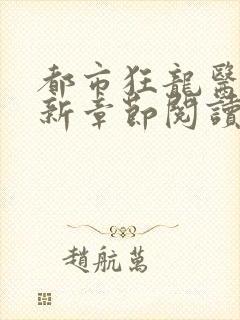 都市狂龍醫
新章節閱讀
趙航萬